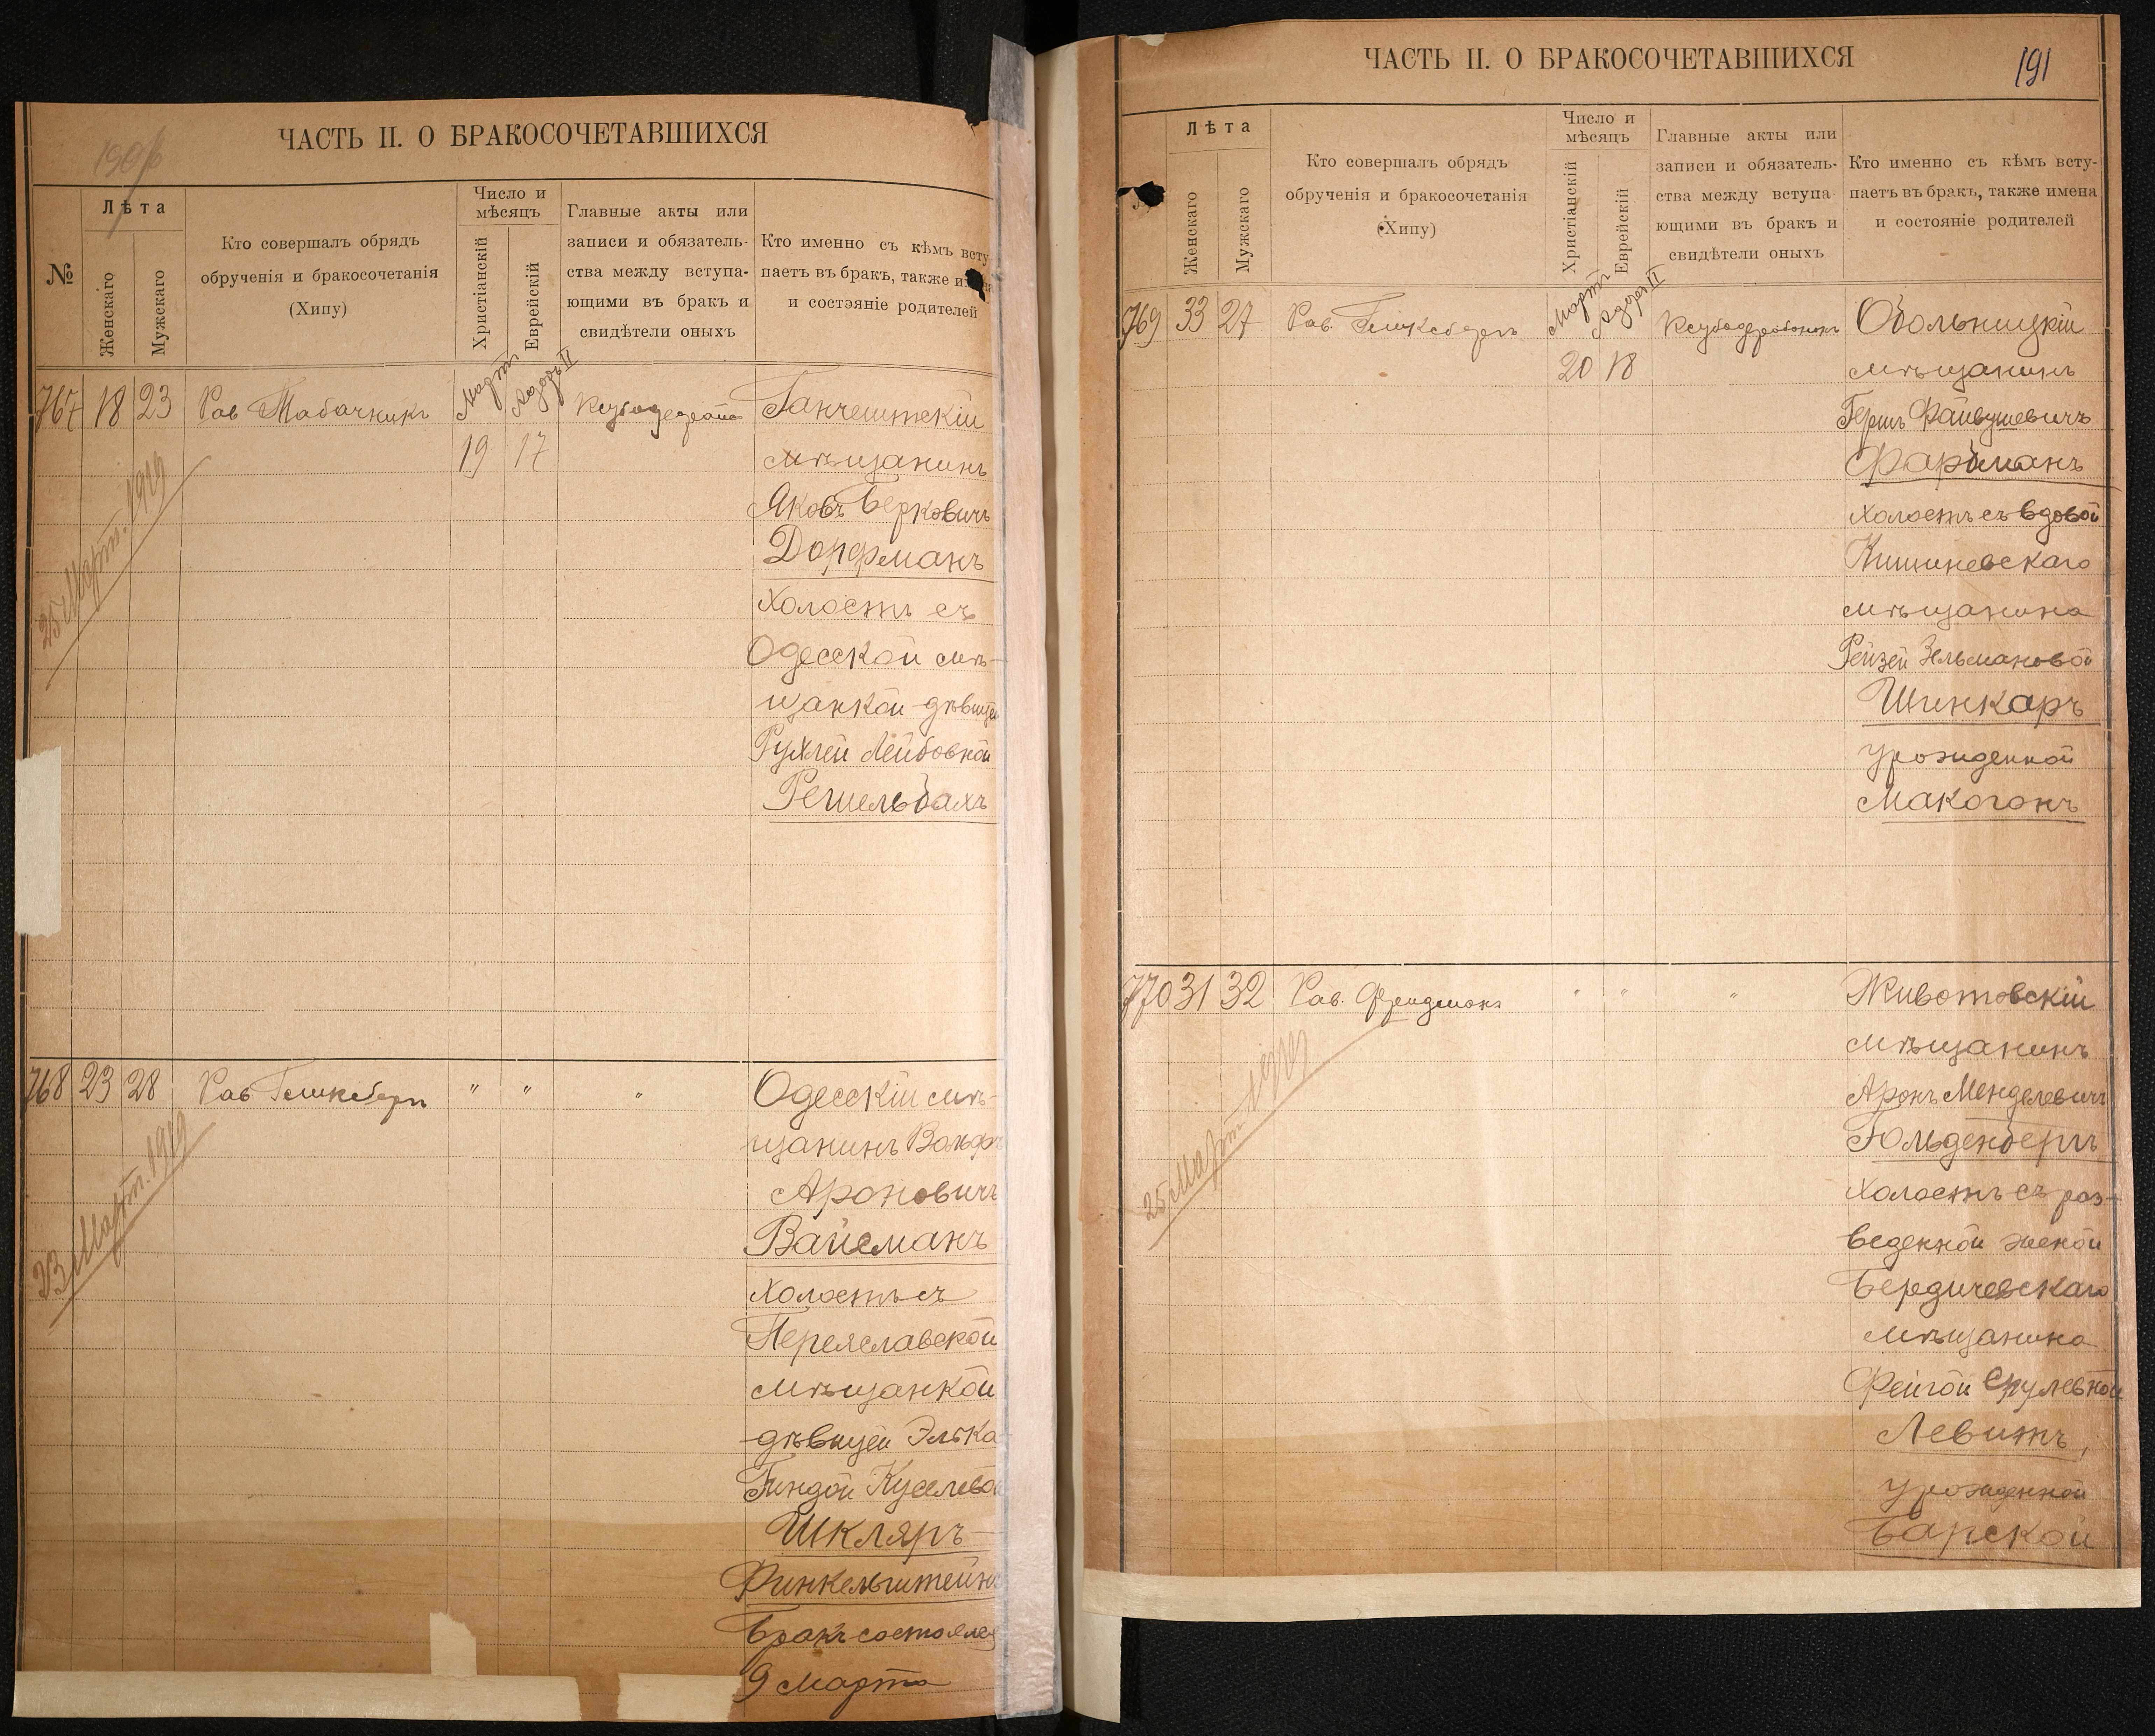 ЧАСТЬ II. О БРАКОСОЧЕТАВШИХСЯ
№
Лѣта
Женскаго
Мужскаго
Кто совершалъ обрядъ
обрученія и бракосочетанія
(Хипу)
Число и
мѣсяцъ
Христіанскій
Еврейскій
Главные акты или
записи и обязатель-
ства между вступа-
ющими въ бракъ и
свидѣтели оныхъ
Кто именно съ кѣмъ всту
паетъ въ бракъ, также
и состояніе родителей
767 18 23 Рав Табачникъ
Мартъ
Адоръ II
19 17
Ганчештскій
мѣщанинъ
Яковъ Берковичъ
Дорфманъ
холостъ съ
Одесской мѣ-
щанкой дѣвицей
Рухлей Лейбовной
Решельбахъ
25 Март. 1919
768 23 28 Рав Гликсбергъ " " "
Одесскій мѣ-
щанинъ Вольфъ
Ароновичъ
Вайсманъ
холостъ съ
Переяславской
мѣщанкой
дѣвицей Элька
Гиндой
Шкляръ-
Финкельштейнъ
Бракъ состоялся
9 Марта
23 Март. 1919
ЧАСТЬ II. О БРАКОСОЧЕТАВШИХСЯ
191
Лѣта
Женскаго
Мужскаго
Кто совершалъ обрядъ
обрученія и бракосочетанія
(Хипу)
Число и
мѣсяцъ
Христіанскій
Еврейскій
Главные акты или
записи и обязатель-
ства между вступа
ющими въ бракъ и
свидѣтели оныхъ
Кто именно съ кѣмъ всту-
паетъ въ бракъ, также имена
и состояніе родителей
769 33 27 Рав. Гликсбергъ
Мартъ
Адоръ II
20 18
Обольницкій
мѣщанинъ
Гершъ Файвушевичъ
Фарбманъ
холостъ съ вдовой
Кишиневскаго
мѣщанина
Рейзей Зельмановой
Шинкаръ
урожденной
Макогонъ
770 31 32 Рав. Фридманъ " " "
Животовскій
мѣщанинъ
Аронъ Менделевичъ
Гольденбергъ
холостъ съ раз-
веденной женой
Бердичевскаго
мѣщанина
Фейгой Срулевной
Левитъ,
урожденной
Барской
25 Март 1919